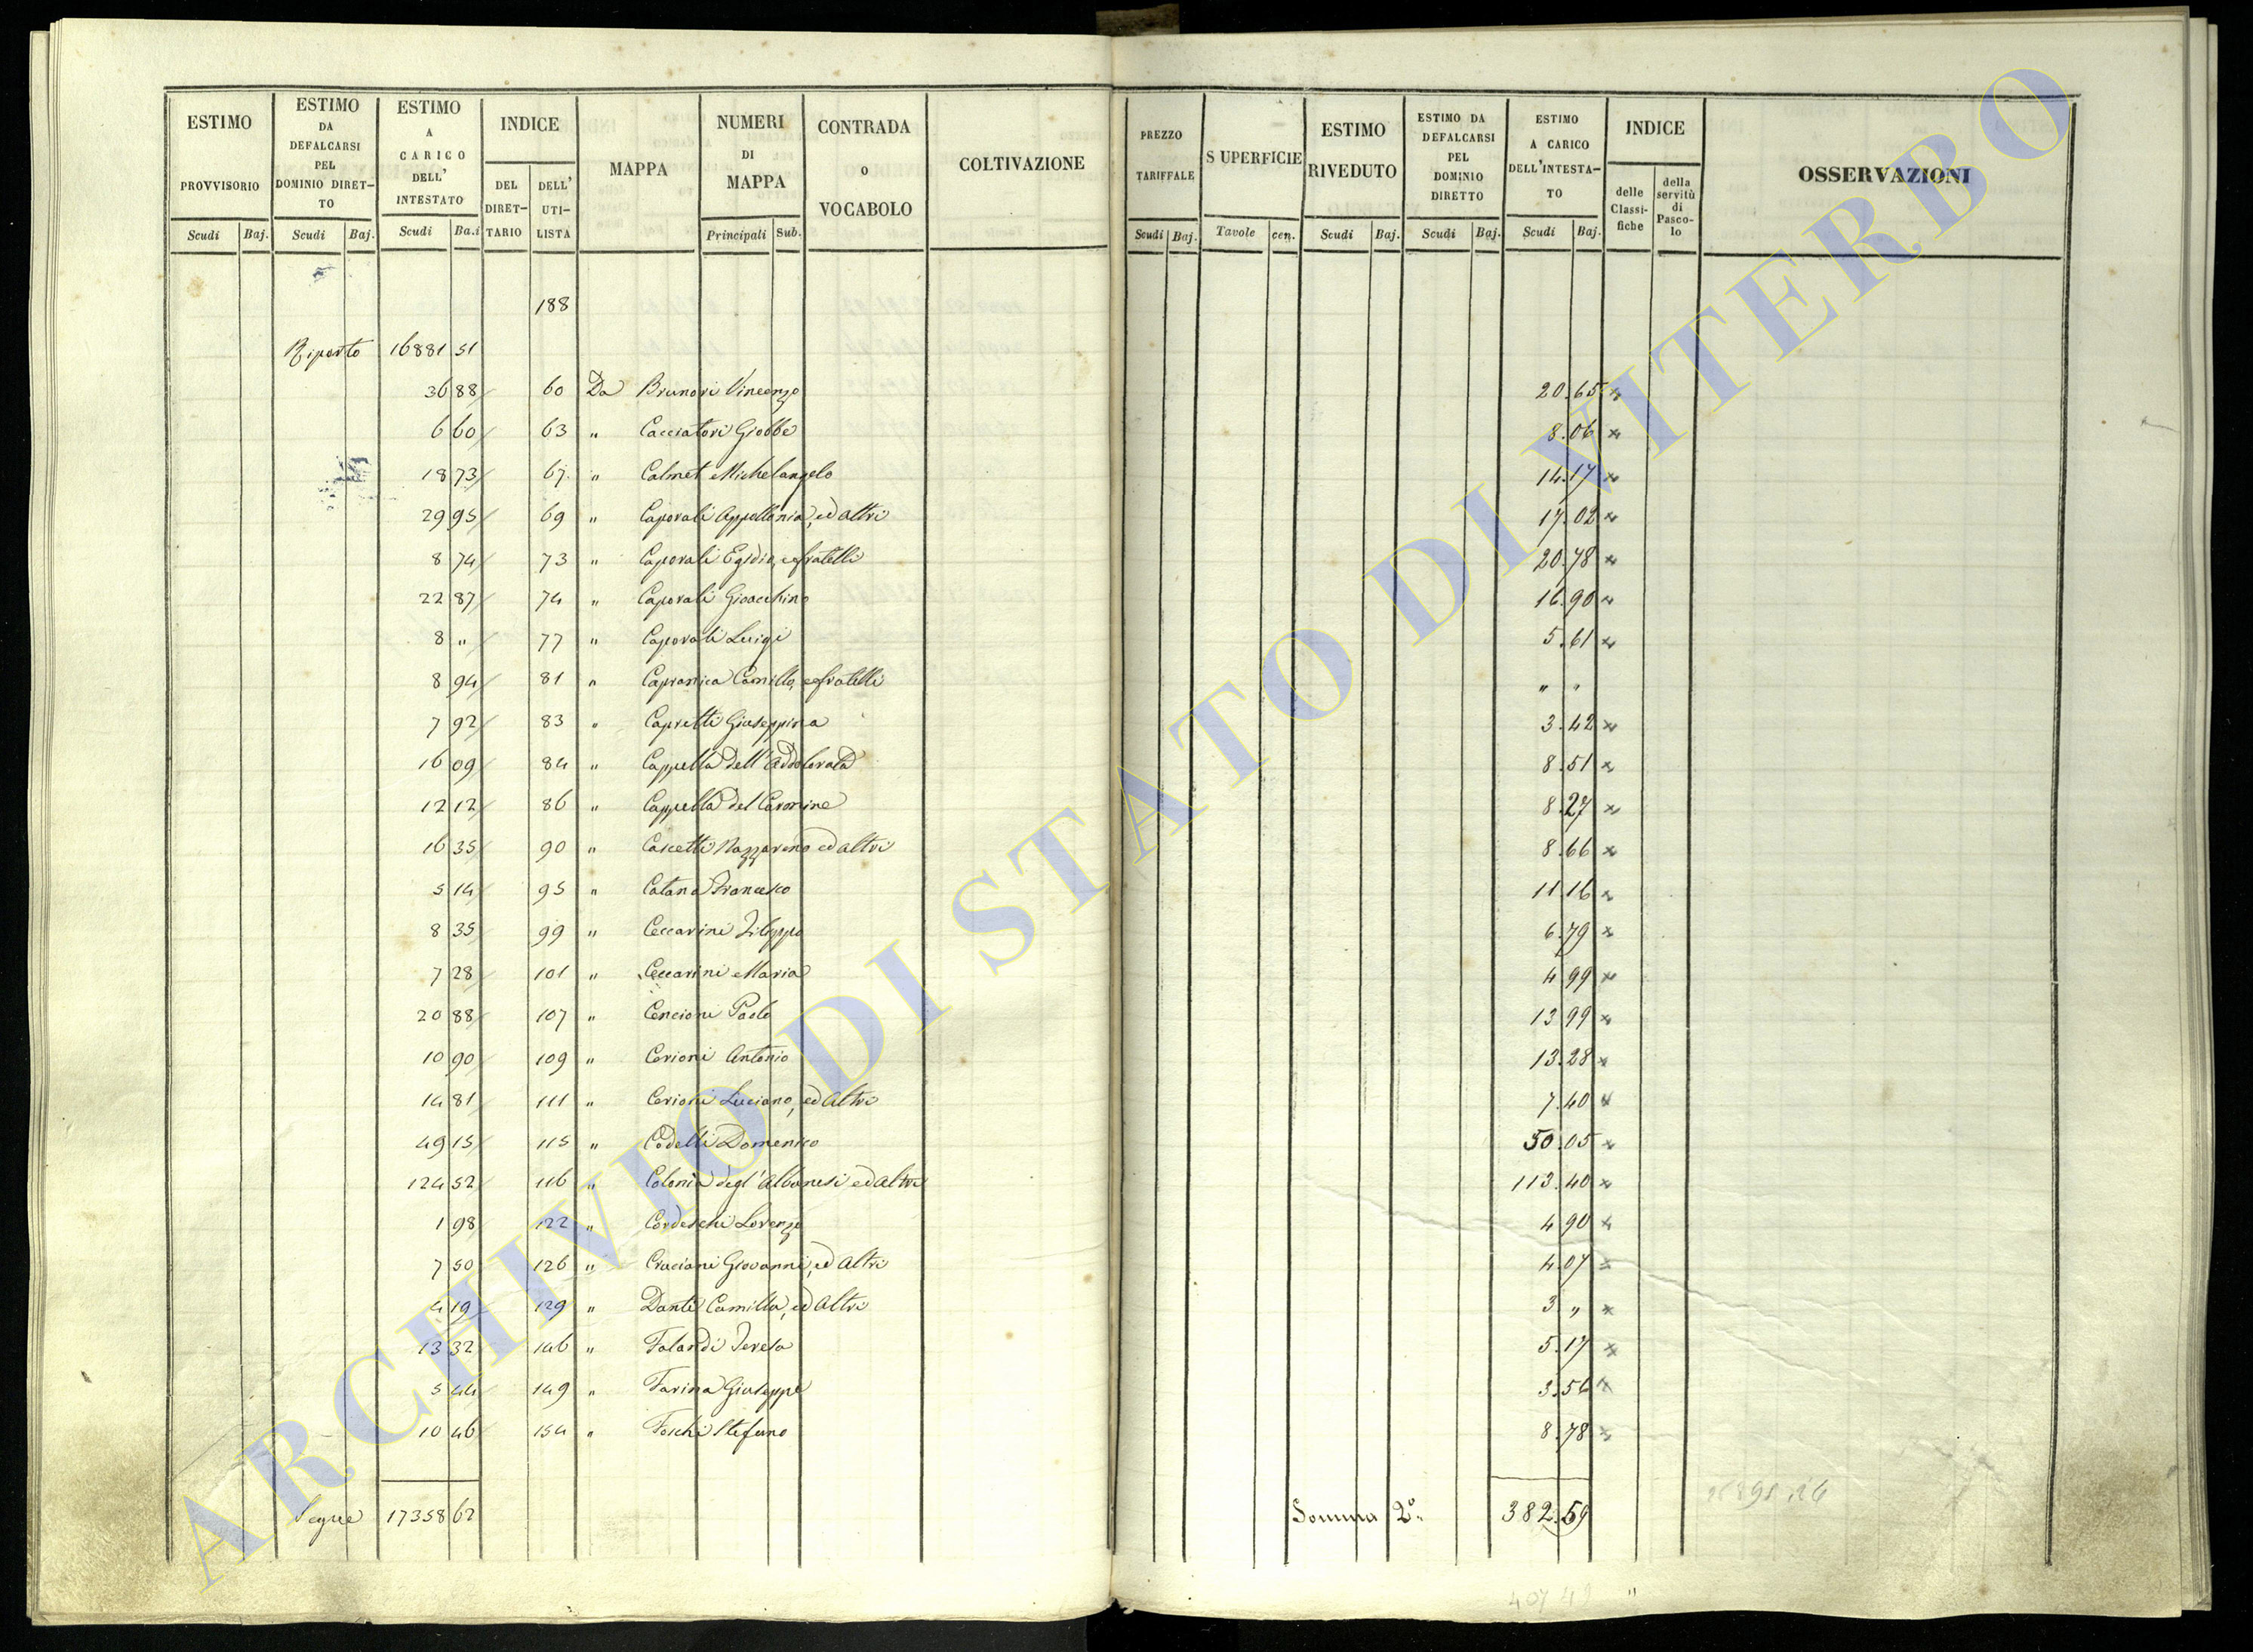 ESTIMO PROVVISORIO Scudi Baj.
ESTIMO DA DEFALCARSI PEL DOMINIO DIRET-TO Scudi Baj.
ESTIMO A CARICO DELL' INTESTATO Scudi Ba.i
INDICE DEL DIRET-TARIO DELL' UTI-LISTA
MAPPA
NUMERI DI MAPPA Principali Sub.
CONTRADA o VOCABOLO
COLTIVAZIONE
PREZZO TARIFFALE Scudi Baj.
SUPERFICIE Tavole cen.
ESTIMO RIVEDUTO Scudi Baj.
ESTIMO DA DEFALCARSI PEL DOMINIO DIRETTO Scudi Baj.
ESTIMO A CARICO DELL'INTESTA-TO Scudi Baj.
INDICE delle Classi-fiche della servitù di Pasco-lo
OSSERVAZIONI
188
Riporto 16881 51
36 88 60 Da Brunori Vincenzo 20.65
6 60 63 " Cacciatori Giobbe 8.06
18 73 67 " Calmet Michelangelo 14.17
29 95 69 " Caporali Appollonia, ed altri 17.02
8 74 73 " Caporali Egidio, e fratelli 20.78
22 87 74 " Caporali Gioacchino 16.90
8 " 77 " Caporali Luigi 5.61
8 94 81 " Capranica Camillo, e fratelli " "
7 92 83 " Capretti Giuseppina 3.42
16 09 84 " Cappella dell'Addolorata 8.51
12 12 86 " Cappella del Carmine 8.27
16 35 90 " Cascetti Nazzareno ed altri 8.66
5 14 95 " Catana Francesco 11.16
8 35 99 " Ceccarini Filippo 6.79
7 28 101 " Ceccarini Maria 4.99
20 88 107 " Cencioni Paolo 13.99
10 90 109 " Cerioni Antonio 13.28
14 81 111 " Cerioni Luciano, ed altri 7.40
49 15 115 " Codelli Domenico 50.05
124 52 116 " Colonia degl'Albanesi ed altri 113.40
1 98 122 " Cordeschi Lorenzo 4.90
7 50 126 " Cruciani Giovanni, ed altri 4.07
4 19 129 " Danti Camilla, ed altri 3 "
13 32 146 " Falandi Teresa 5.17
5 44 149 " Farina Giuseppe 3.56
10 46 154 " Foschi Stefano 8.78
Segue 17358 62 Somma 2° 382.59
407 42
ARCHIVIO DI STATO DI VITERBO